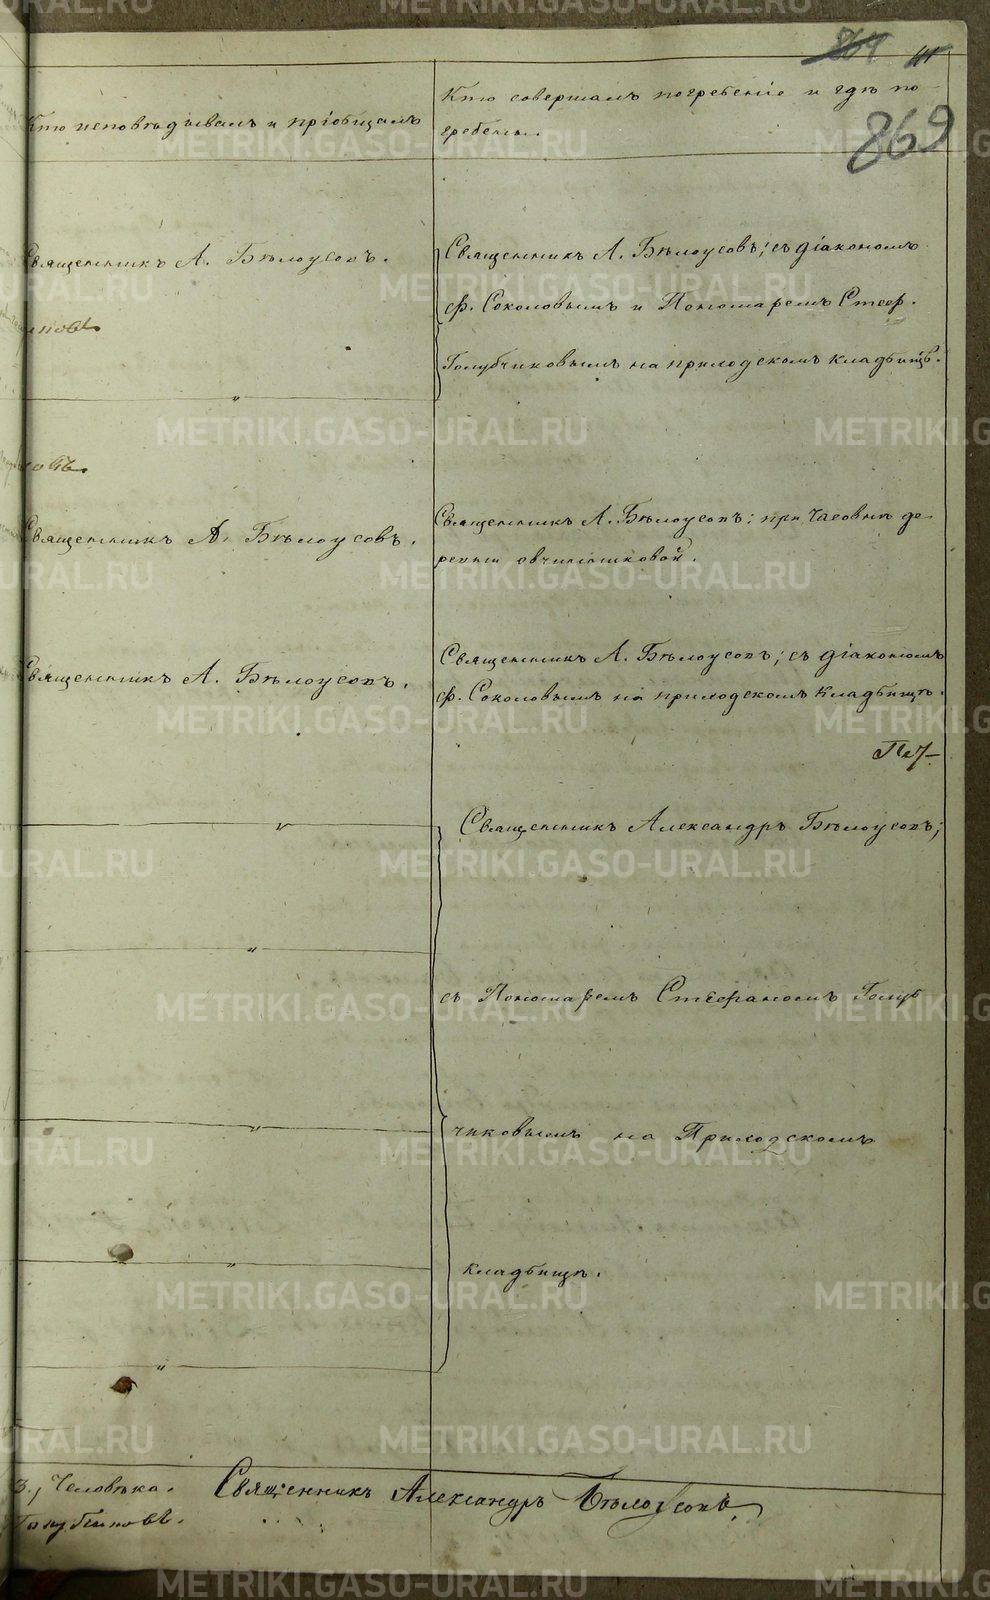 869
Кто исповѣдывалъ и пріобщалъ
Кто совершалъ погребеніе и гдѣ по-
гребены.
869
Священникъ А. Бѣлоусовъ.
Священникъ А. Бѣлоусовъ; съ діакономъ
Ф. Соколовымъ и Пономаремъ Стеф.
Голубчиковымъ на приходскомъ кладбищѣ.
Священникъ А. Бѣлоусовъ.
Священникъ А. Бѣлоусовъ: при часовнѣ де-
ревни овчинниковой.
Священникъ А. Бѣлоусовъ.
Священникъ А. Бѣлоусовъ; съ діакономъ
Ф. Соколовымъ на приходскомъ кладбищѣ.
Священникъ Александръ Бѣлоусовъ;
съ Пономаремъ Стефаномъ Голуб
чиковымъ на Приходскомъ
кладбищѣ.
3., Человѣка.
Священникъ Александръ Бѣлоусовъ
METRIKI.GASO-URAL.RU